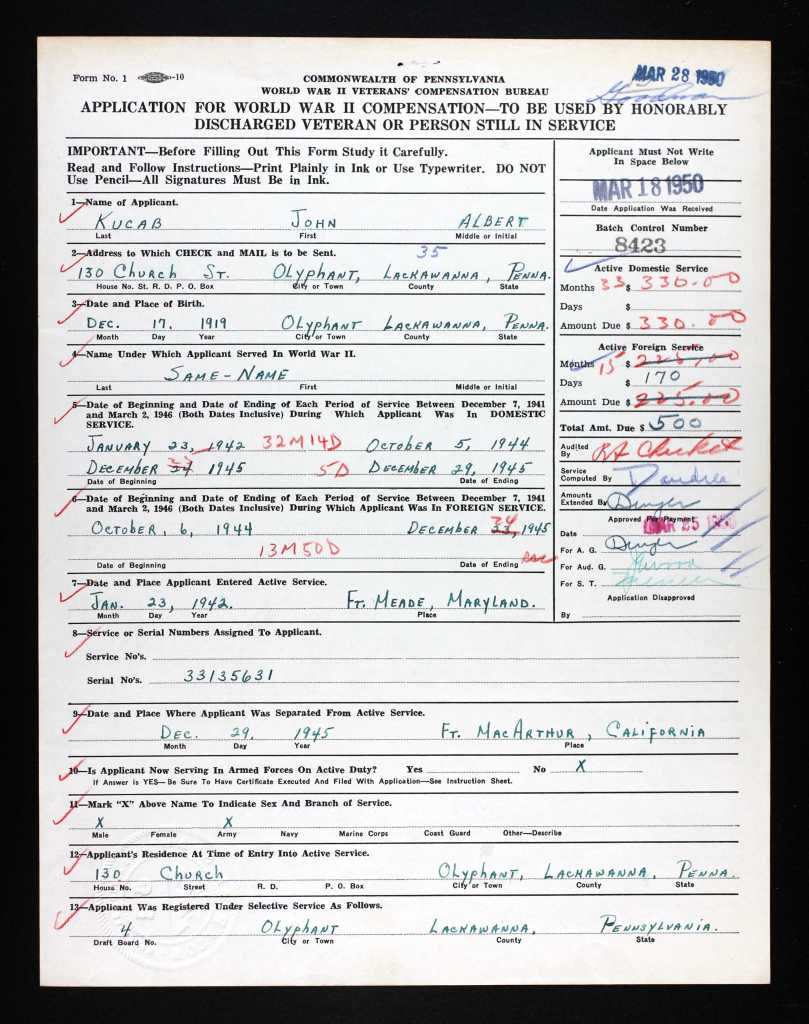 Form No. 1 -10
COMMONWEALTH OF PENNSYLVANIA
WORLD WAR II VETERANS' COMPENSATION BUREAU
MAR 28 1950
APPLICATION FOR WORLD WAR II COMPENSATION—TO BE USED BY HONORABLY
DISCHARGED VETERAN OR PERSON STILL IN SERVICE
IMPORTANT—Before Filling Out This Form Study it Carefully.
Read and Follow Instructions—Print Plainly in Ink or Use Typewriter. DO NOT
Use Pencil—All Signatures Must Be in Ink.
1—Name of Applicant.
KUCAB JOHN ALBERT
Last First Middle or Initial
2—Address to Which CHECK and MAIL is to be Sent. 35
130 CHURCH ST. OLYPHANT, LACKAWANNA, PENNA.
House No. St. R. D. P. O. Box City or Town County State
3—Date and Place of Birth.
DEC. 17, 1919 OLYPHANT LACKAWANNA, PENNA.
Month Day Year City or Town County State
4—Name Under Which Applicant Served In World War II.
SAME-NAME
Last First Middle or Initial
5—Date of Beginning and Date of Ending of Each Period of Service Between December 7, 1941
and March 2, 1946 (Both Dates Inclusive) During Which Applicant Was In DOMESTIC
SERVICE.
JANUARY 23, 1942 32M14D OCTOBER 5, 1944
DECEMBER 1945 5D DECEMBER 29, 1945
Date of Beginning Date of Ending
6—Date of Beginning and Date of Ending of Each Period of Service Between December 7, 1941
and March 2, 1946 (Both Dates Inclusive) During Which Applicant Was In FOREIGN SERVICE.
24
OCTOBER, 6, 1944 DECEMBER 23, 1945
13M50D
Date of Beginning Date of Ending
7—Date and Place Applicant Entered Active Service.
JAN. 23, 1942. FT. MEADE, MARYLAND.
Month Day Year Place
8—Service or Serial Numbers Assigned To Applicant.
Service No's.
Serial No's. 33135631
9—Date and Place Where Applicant Was Separated From Active Service.
DEC. 29, 1945 FT. MACARTHUR, CALIFORNIA
Month Day Year Place
10—Is Applicant Now Serving In Armed Forces On Active Duty? Yes No X
If Answer is YES—Be Sure To Have Certificate Executed And Filed With Application—See Instruction Sheet.
11—Mark "X" Above Name To Indicate Sex And Branch of Service.
X X
Male Female Army Navy Marine Corps Coast Guard Other—Describe
12—Applicant's Residence At Time of Entry Into Active Service.
130 CHURCH OLYPHANT, LACKAWANNA, PENNA.
House No. Street R. D. P. O. Box City or Town County State
13—Applicant Was Registered Under Selective Service As Follows.
4 OLYPHANT LACKAWANNA, PENNSYLVANIA.
Draft Board No. City or Town County State
Applicant Must Not Write
In Space Below
MAR 18 1950
Date Application Was Received
Batch Control Number
8423
Active Domestic Service
Months 33 $ 330.00
Days $
Amount Due $ 330.00
Active Foreign Service
Months 15 $ 225.00
Days $ 170
Amount Due $ 225.00
Total Amt. Due $ 500
Audited
By
Service
Computed By
Amounts
Extended By
Approved For Payment
Date MAR 25 1950
For A. G.
For Aud. G.
For S. T.
Application Disapproved
By